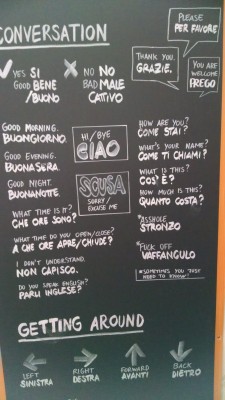 CONVERSATION
PLEASE
PER FAVORE
THANK YOU.
GRAZIE.
YOU ARE
WELCOME
PREGO
YES SI
GOOD BENE
/BUONO
NO NO
BAD MALE
CATTIVO
GOOD MORNING.
BUONGIORNO.
GOOD EVENING.
BUONASERA.
GOOD NIGHT.
BUONANOTTE.
HI/BYE
CIAO
SCUSA
SORRY/
EXCUSE ME
HOW ARE YOU?
COME STAI?
WHAT'S YOUR NAME?
COME TI CHIAMI?
WHAT IS THIS?
COS' È?
HOW MUCH IS THIS?
QUANTO COSTA?
*ASSHOLE
STRONZO
*FUCK OFF
VAFFANCULO
*SOMETIMES YOU JUST
NEED TO KNOW!
WHAT TIME IS IT?
CHE ORE SONO?
WHAT TIME DO YOU OPEN/CLOSE?
A CHE ORE APRE/CHIUDE?
I DON'T UNDERSTAND.
NON CAPISCO.
DO YOU SPEAK ENGLISH?
PARLI INGLESE?
GETTING AROUND
LEFT
SINISTRA
RIGHT
DESTRA
FORWARD
AVANTI
BACK
DIETRO